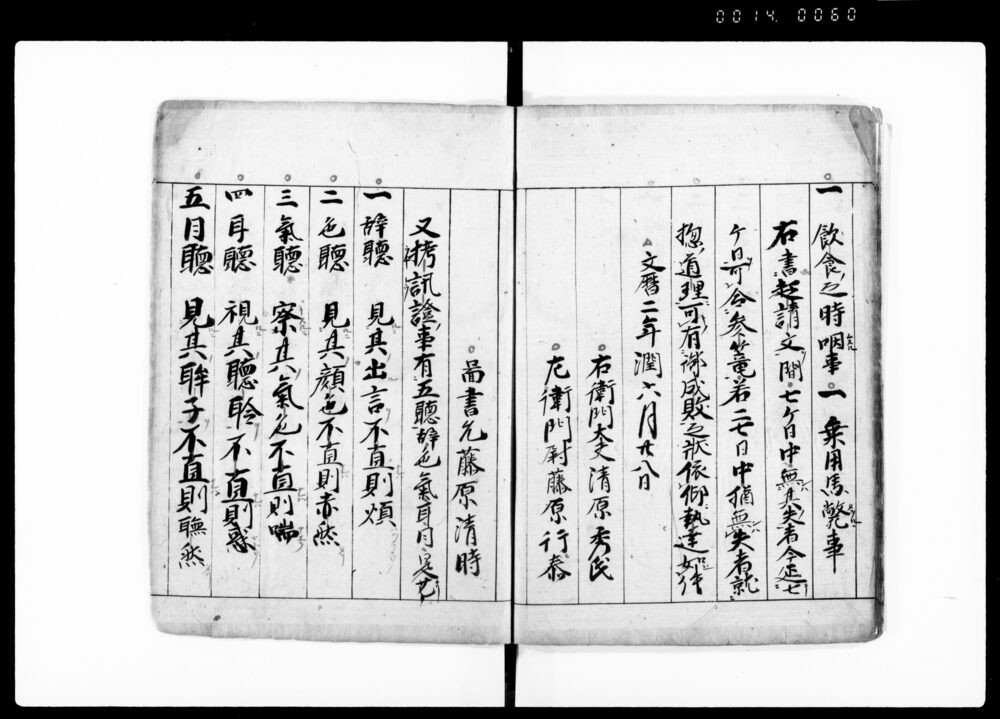 0014. 0060
一 飲食之時咽事 一 乗用馬斃事
右書起請文間七ケ日中無其失者今延七
ケ日可令参篭若二七日中猶無失者就
惣道理可有御成敗之状依仰執達如件
文暦二年潤六月廿八日
右衛門大夫清原秀氏
左衛門尉藤原行泰
啚書允藤原清時
又拷訊證事有五聴辞色氣耳目是也
一 辞聴 見其出言不直則煩
二 色聴 見其顔色不直則赤然
三 氣聴 察其氣色不直則喘
四 耳聴 視其聴聆不直則惑
五 目聴 見其眸子不直則